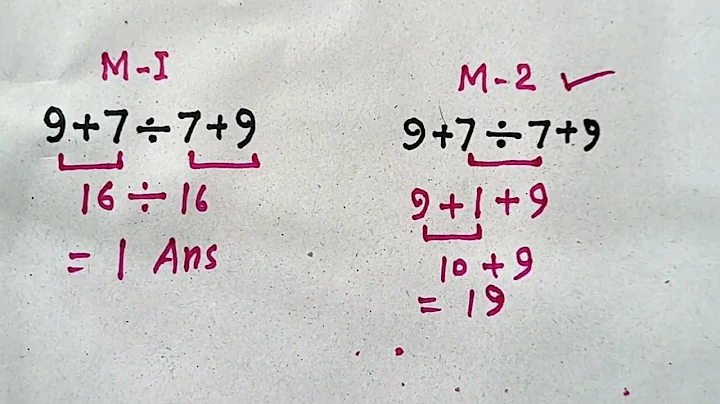 M-I
9+7÷7+9
16÷16
= 1 Ans
M-2 ✓
9+7÷7+9
9+1+9
10+9
= 19